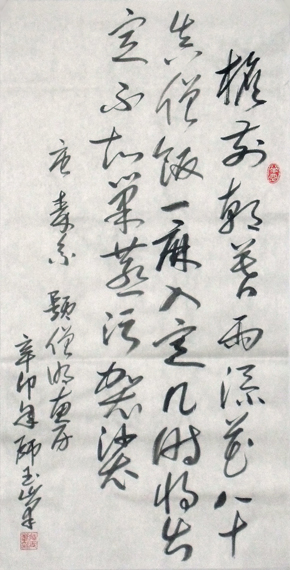 檐前朝暮雨添花八十
真僧饭一麻入定几时将出
定不知巢燕污袈裟
唐秦系 题僧明惠房
辛卯年师玉